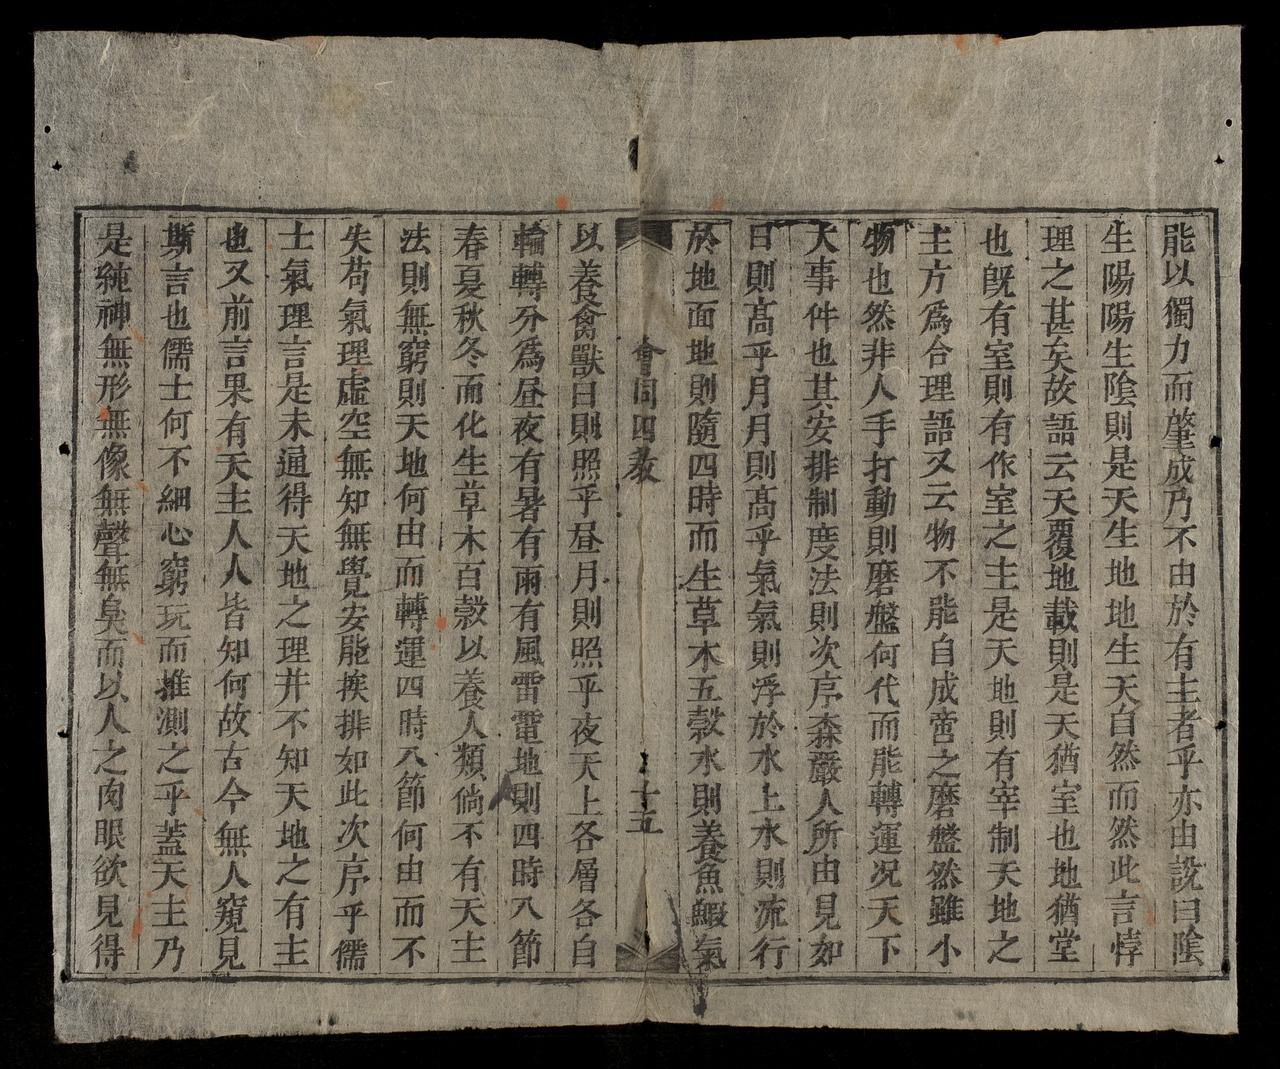 能以獨力而肇成乃不由於有主者乎亦由說曰陰
生陽陽生陰則是天生地地生天自然而然此言悖
理之甚矣故語云天覆地載則是天猶室也地猶堂
也旣有室則有作室之主是天地則有宰制天地之
主方爲合理語又云物不能自成啻之磨盤然雖小
物也然非人手打動則磨盤何代而能轉運况天下
大事件也其安排制度法則次序森嚴人所由見如
日則高乎月月則高乎氣氣則浮於水上水則流行
於地面地則隨四時而生草木五榖水則養魚鰕氣
會同四教
十五
以養禽獸日則照乎昼月則照乎夜天上各層各自
輪轉分爲昼夜有暑有雨有風雷電地則四時八節
春夏秋冬而化生草木百榖以養人類倘不有天主
法則無窮則天地何由而轉運四時八節何由而不
失苟氣理虛空無知無覺安能挨排如此次序乎儒
士氣理言是未通得天地之理并不知天地之有主
也又前言果有天主人人皆知何故古今無人窺見
斯言也儒士何不細心窮玩而推測之乎蓋天主乃
是純神無形無像無聲無臭而以人之肉眼欲見得